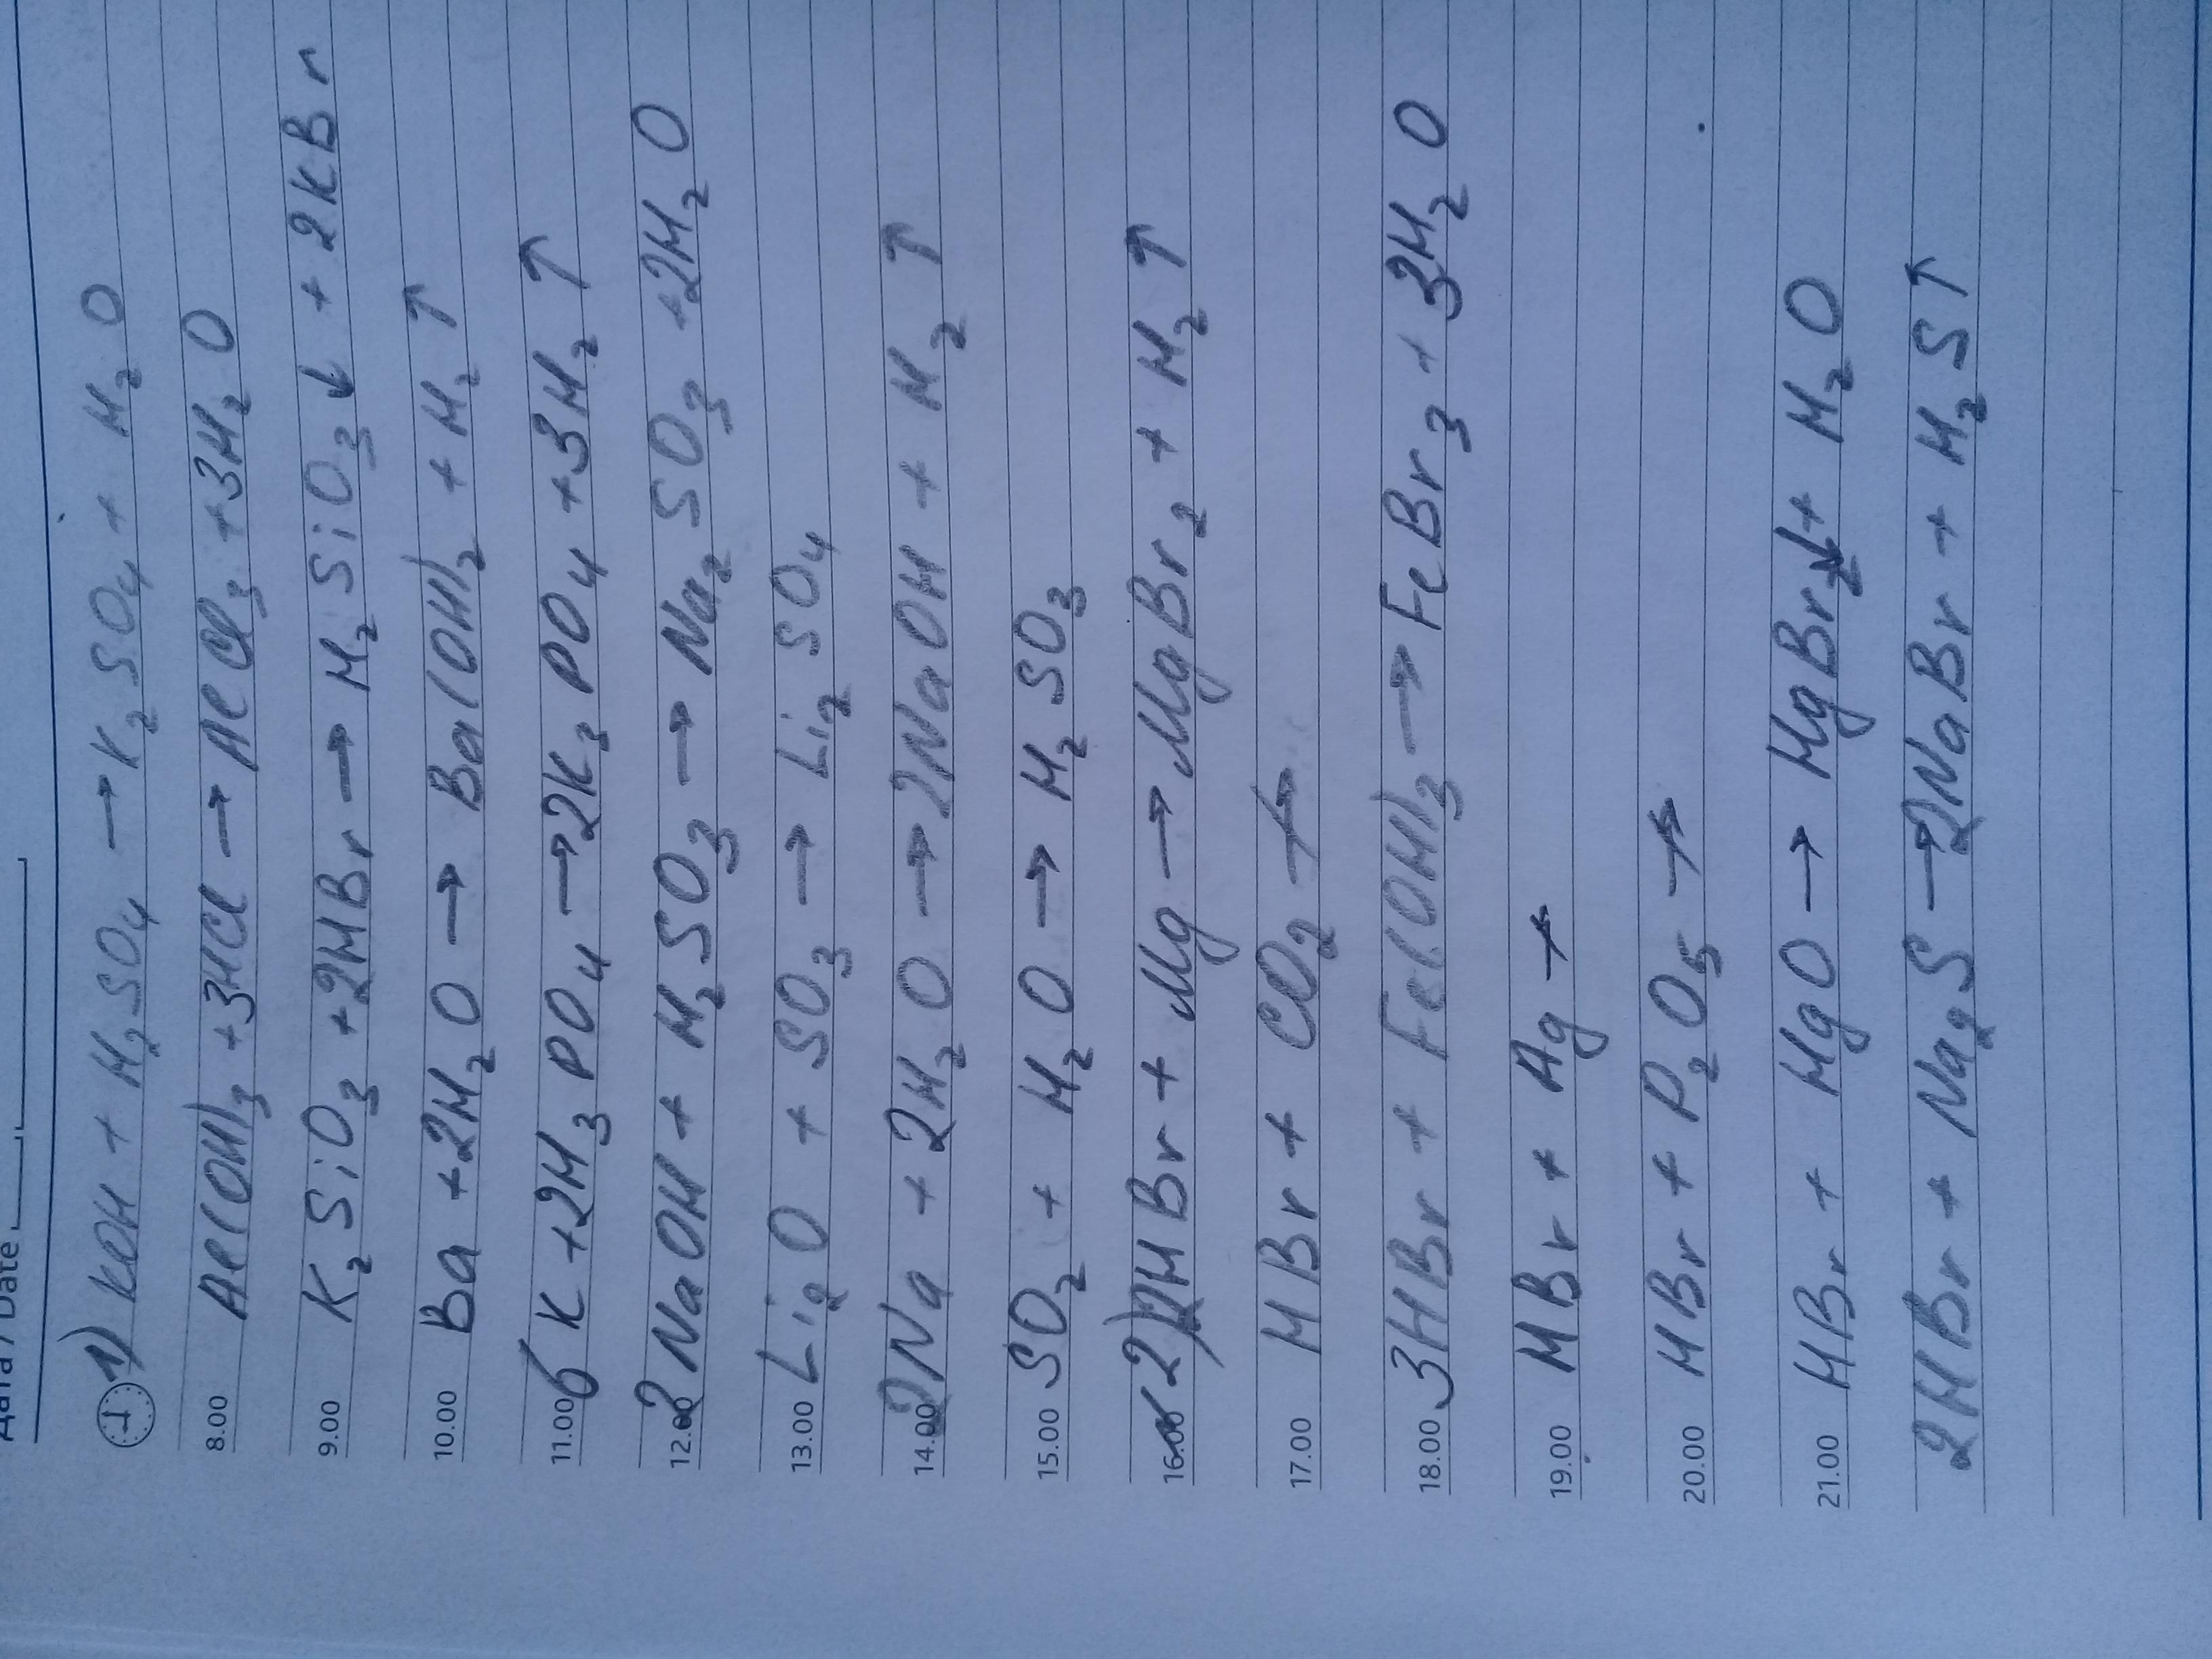 Дата / Date
1) KOH + H₂SO₄ → K₂SO₄ + H₂O
8.00 Al(OH)₃ + 3HCl → AlCl₃ + 3H₂O
9.00 K₂SiO₃ + 2HBr → H₂SiO₃↓ + 2KBr
10.00 Ba + 2H₂O → Ba(OH)₂ + H₂↑
11.00 6K + 2H₃PO₄ → 2K₃PO₄ + 3H₂↑
12.00 2NaOH + H₂SO₃ → Na₂SO₃ + 2H₂O
13.00 Li₂O + SO₃ → Li₂SO₄
14.00 2Na + 2H₂O → 2NaOH + H₂↑
15.00 SO₂ + H₂O → H₂SO₃
16.00 2) 2HBr + Mg → MgBr₂ + H₂↑
17.00 HBr + CO₂ ↛
18.00 3HBr + Fe(OH)₃ → FeBr₃ + 3H₂O
19.00 HBr + Ag ↛
20.00 HBr + P₂O₅ ↛
21.00 HBr + HgO → HgBr₂↓ + H₂O
2HBr + Na₂S → 2NaBr + H₂S↑